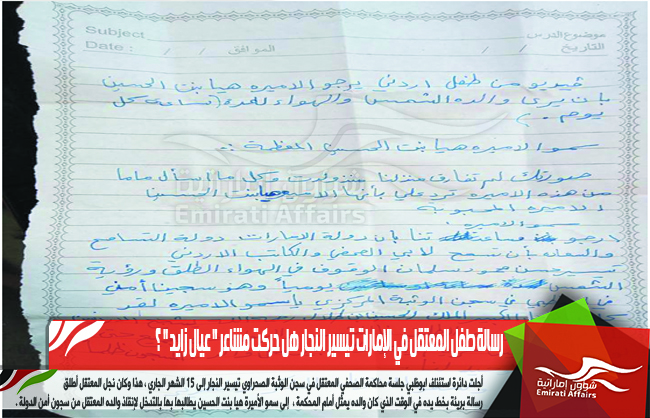 Subject : موضوع الدرس
Date : / / الموافق / / التاريخ
فيديو من طفل اردني يرجو الاميره هيا بنت الحسين
بان يرى والده الشمس والهواء لمدة (ساعة كل
يوم .)
سمو الاميره هيا بنت الحسين المعظمة :-
صورتك لم تفارق منزلنا منذ ولدت وكل ما اسأل ماما
من هذه الاميره ترد علي بأنها الاميره هيا بنت الحسين
الاميره المحبوبه
سمو الاميره
ارجو مساعدتنا بأن دولة الامارات دولة التسامح
والسعاده بأن تسمح لابي الصحفي والكاتب الاردني
تيسير حسن محمود سلمان الوقوف في الهواء الطلق ورؤية
الشمس يومياً وهو سجين أمني
في سجن الوثبة المركزي يا سمو الاميره لقد
شؤون إماراتية
Emirati Affairs
رسالة طفل المعتقل في الإمارات تيسير النجار هل حركت مشاعر " عيال زايد " ؟
أجلت دائرة استئناف ابوظبي جلسة محاكمة الصحفي المعتقل في سجن الوثبة الصحراوي تيسير النجار إلى 15 الشهر الجاري ، هذا وكان نجل المعتقل أطلق
رسالة بريئة بخط يده في الوقت الذي كان والده يمثل أمام المحكمة ، إلى سمو الأميرة هيا بنت الحسين يطالبها بها بالتدخل لإنقاذ والده المعتقل من سجون أمن الدولة .
شؤون إماراتية
Emirati Affairs